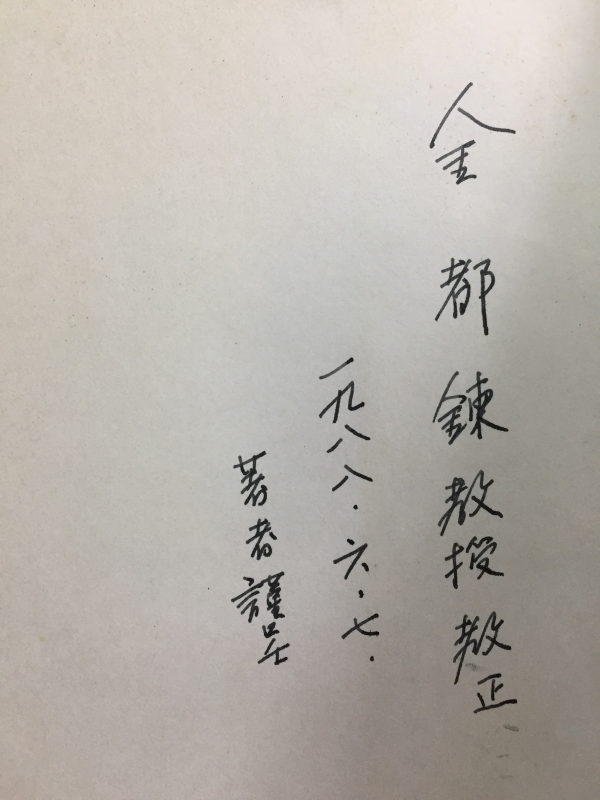 金都鍊教授教正
一九八八.六.七.
著者謹呈